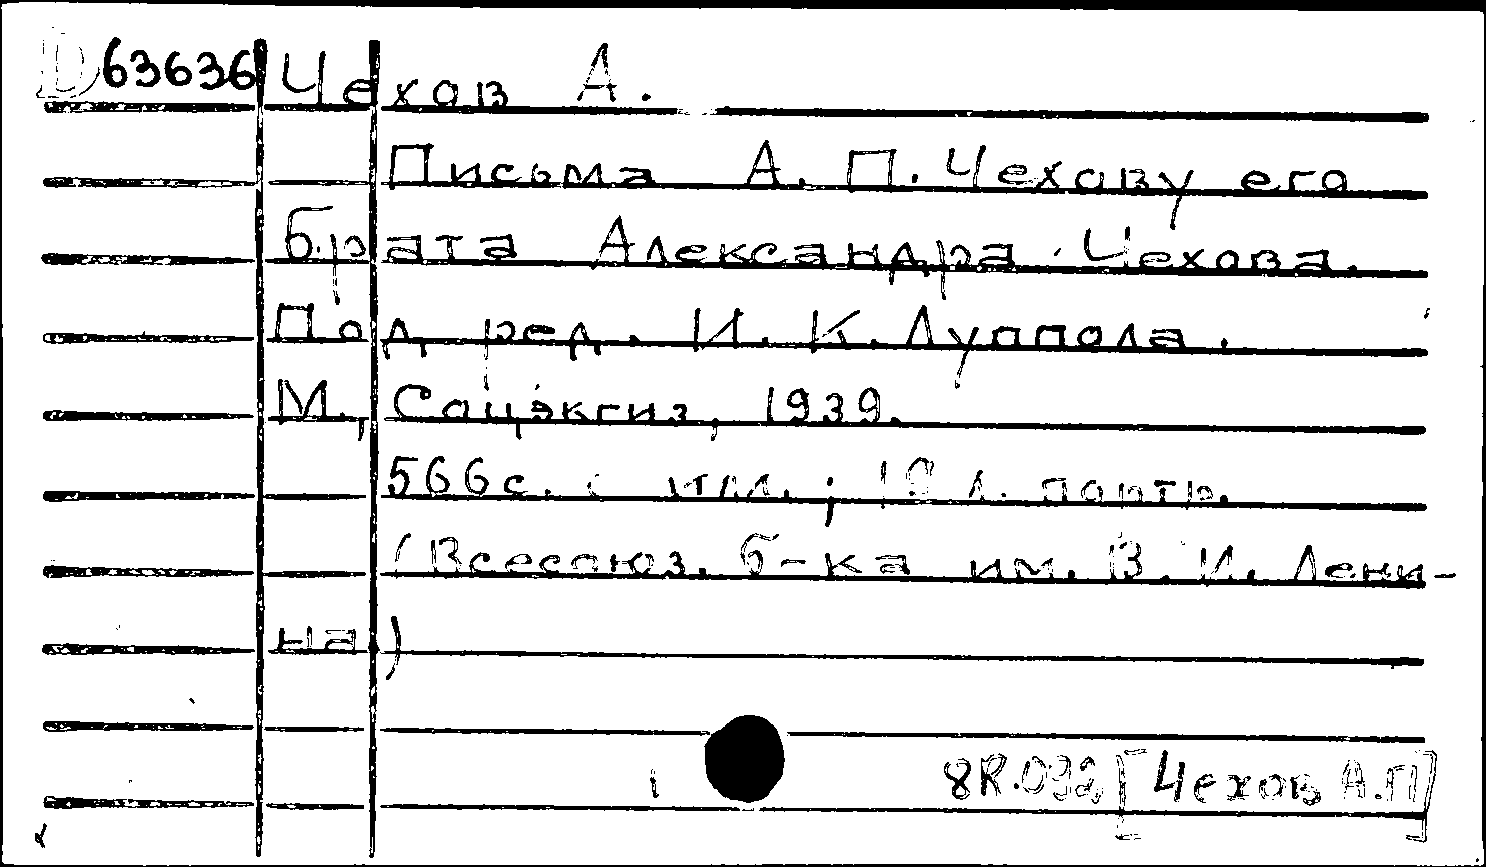 D63636 Чехов А.
Письма А. П. Чехову его
брата Александра Чехова.
Под ред. И. К. Луппола.
М., Соцэкгиз, 1939.
566с. : илл. ; 19 л. портр.
(Всесоюз. б-ка им. В. И. Лени-
на.)
8R.092 [Чехов А.П]